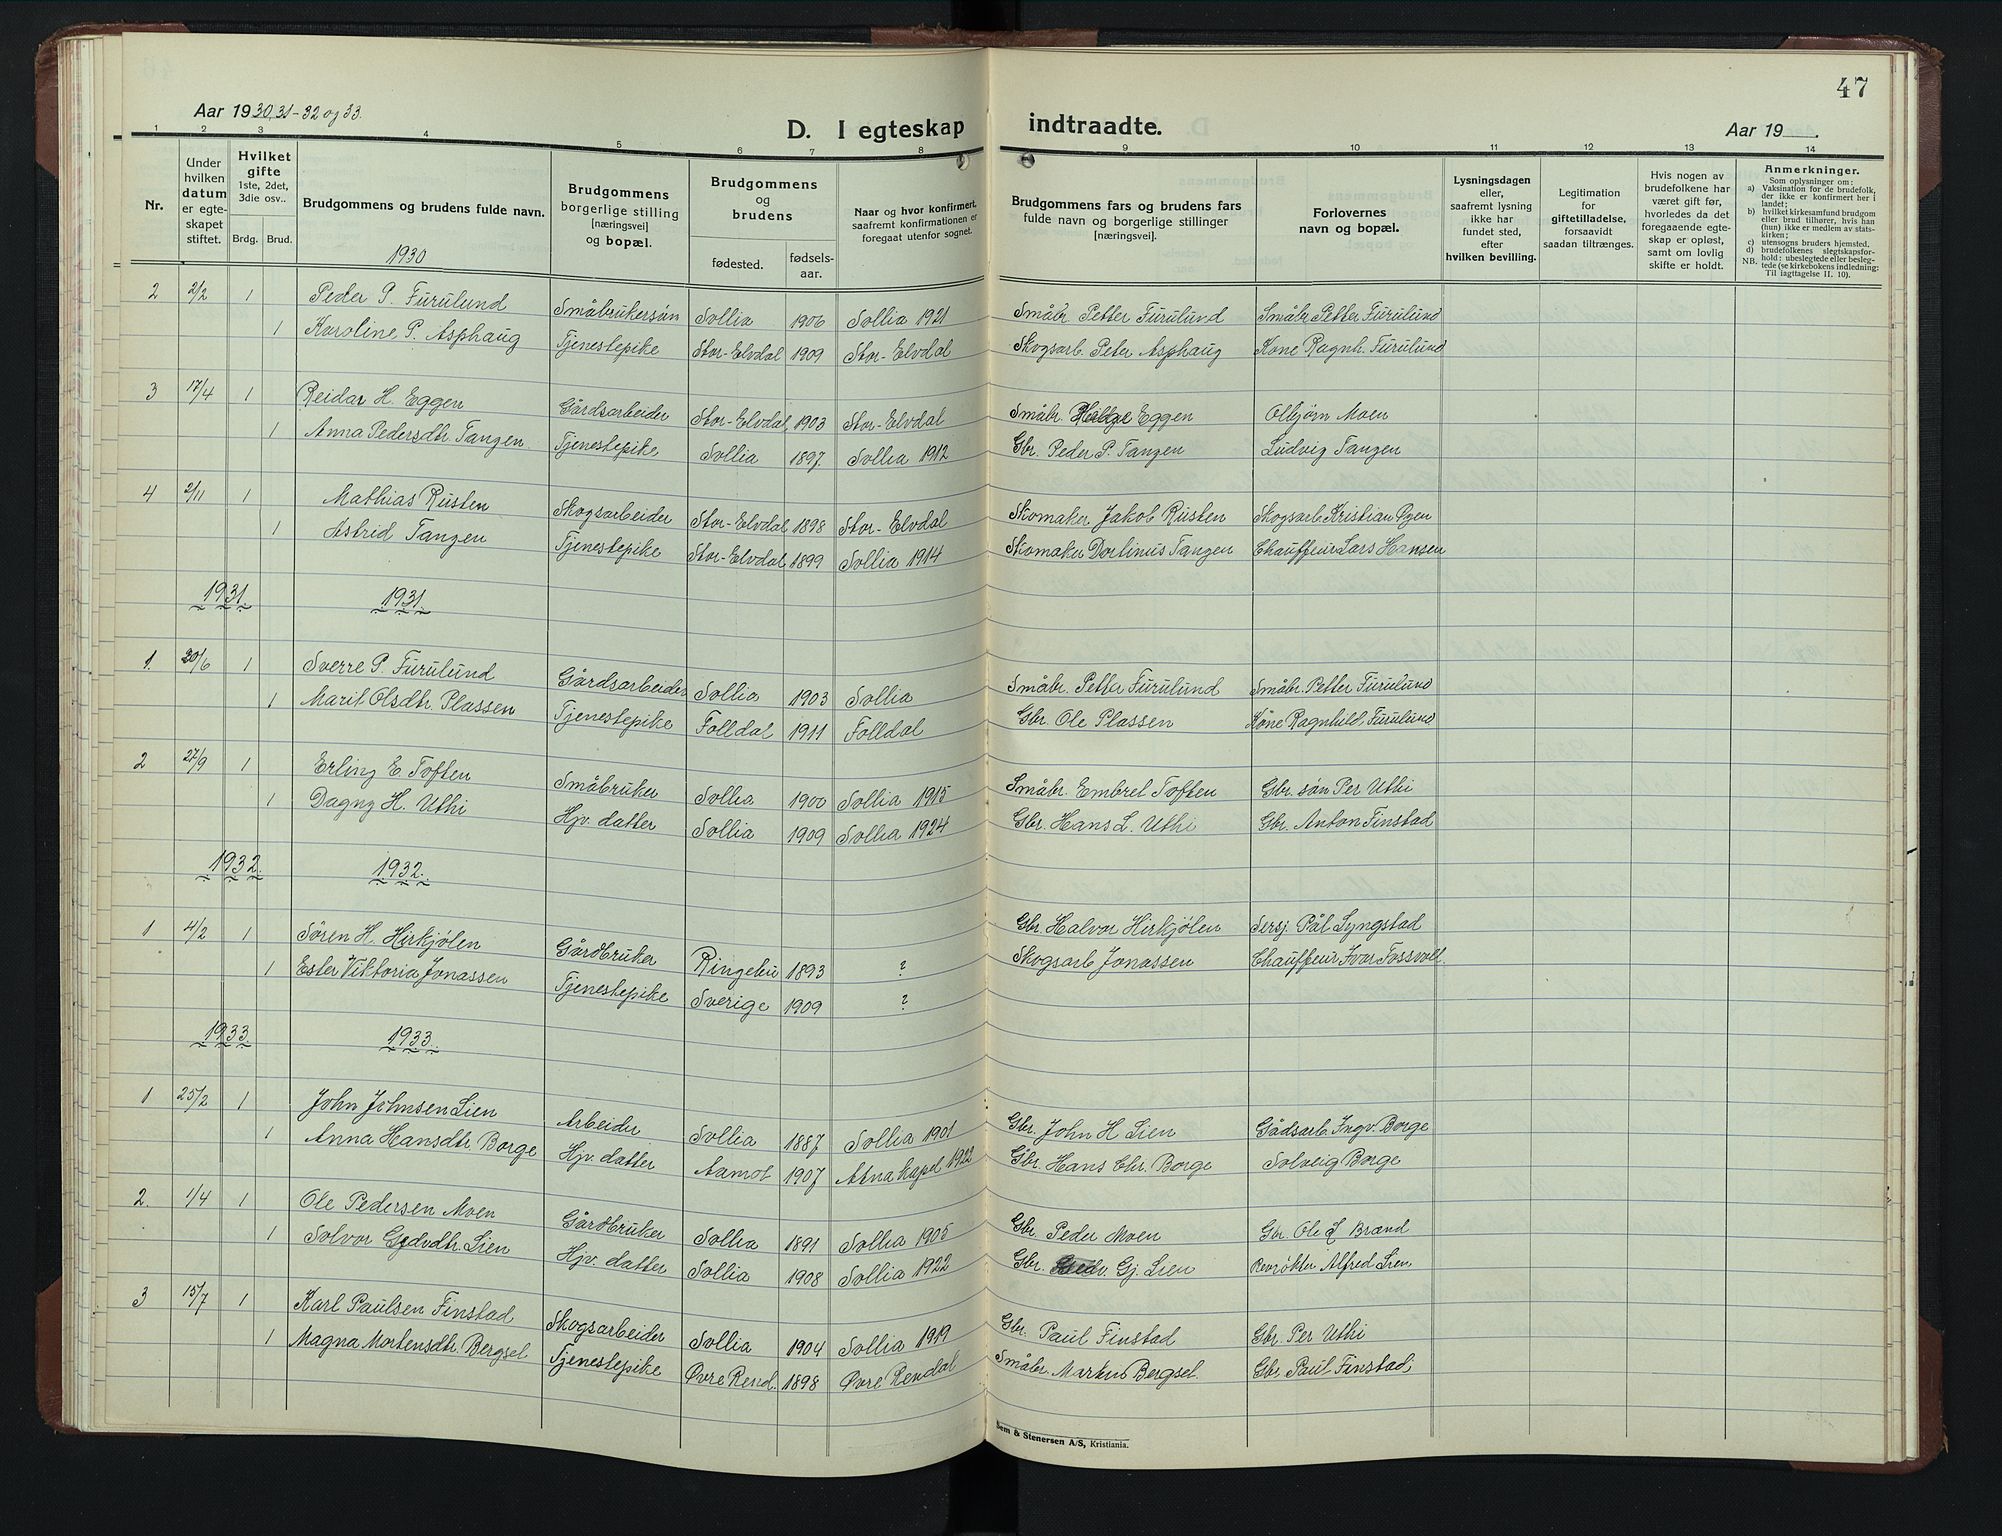 47
Aar 1930, 31 - 32 og 33.
D. I egteskap indtraadte.
Aar 19
1 2 3 4 5 6 7 8 9 10 11 12 13 14
Nr.
Under hvilken datum er egte-skapet stiftet.
Hvilket gifte 1ste, 2det, 3die osv.. Brdg. Brud.
Brudgommens og brudens fulde navn.
Brudgommens borgerlige stilling [næringsvei] og bopæl.
Brudgommens og brudens fødested. fødsels-aar.
Naar og hvor konfirmert, saafremt konfirmationen er foregaat utenfor sognet.
Brudgommens fars og brudens fars fulde navn og borgerlige stillinger [næringsvei].
Forlovernes navn og bopæl.
Lysningsdagen eller, saafremt lysning ikke har fundet sted, efter hvilken bevilling.
Legitimation for giftetilladelse, forsaavidt saadan tiltrænges.
Hvis nogen av brudefolkene har været gift før, hvorledes da det foregaaende egte-skap er opløst, samt om lovlig skifte er holdt.
Anmerkninger.
Som oplysninger om:
a) Vaksination for de brudefolk, der ikke er konfirmert her i landet;
b) hvilket kirkesamfund brudgom eller brud tilhører, hvis han (hun) ikke er medlem av stats-kirken;
c) utensogns bruders hjemsted.
d) brudefolkenes slegtskapsfor-hold: ubeslegtede eller besleg-tede (se kirkebokens indledning:
NB. Til iagttagelse II. 10).
1930
2 2/2 1 Peder P. Furulund Småbrukersøn Sollia 1906 Sollia 1921 Småbr. Petter Furulund Småbr. Petter Furulund
1 Karoline P. Asphaug Tjenestepike Stor-Elvdal 1909 Stor-Elvdal Skogsarb. Peter Asphaug Kone Ragnh. Furulund
3 17/4 1 Reidar H. Eggen Gårdsarbeider Stor-Elvdal 1903 Stor-Elvdal Småbr. Helge Eggen Olbjørn Moen
1 Anna Pedersdtr. Tangen Tjenestepike Sollia 1897 Sollia 1912 Gbr. Peder P. Tangen Ludvig Tangen
4 2/11 1 Mathias Rusten Skogsarbeider Stor-Elvdal 1898 Stor-Elvdal Skomaker Jakob Rusten Skogsarb. Kristian
1 Astrid Tangen Tjenestepike Stor-Elvdal 1899 Sollia 1914 Skomaker Dorlinus Tangen Chauffeur Lars Hansen
1931 1931
1. 30/6 1 Sverre P. Furulund Gårdsarbeider Sollia 1903 Sollia Småbr. Petter Furulund Småbr. Petter Furulund
1 Marit Olsdtr. Plassen Tjenestepike Folldal 1911 Folldal Gbr. Ole Plassen Kone Ragnhild Furulund
2 27/9 1 Erling E. Toften Småbruker Sollia 1900 Sollia 1915 Småbr. Embret Toften Gbr. søn Per Uthi
1 Dagny H. Uthi Hjv. datter Sollia 1909 Sollia 1924 Gbr. Hans L. Uthi Gbr. Anton Finstad
1932. 1932.
1 4/2 1 Søren H. Hirkjølen Gårdbruker Ringebu 1893 ? Gbr Halvor Hirkjølen Sersj. Pål Lyngstad
1 Ester Viktoria Jonassen Tjenestepike Sverige 1909 ? Skogsarb Jonassen Chauffeur Ivar Fossvoll.
1933. 1933.
1 25/2 1 John Johnsen Lien Arbeider Sollia 1887 Sollia 1901 Gbr. John H Lien Gådsarb. Ingv. Borge
1 Anna Hansdtr. Borge Hjv. datter Aamot 1907 Atna kapel 1922 Gbr. Hans Chr. Borge Solveig Borge
2. 1/4 1 Ole Pedersen Moen Gårdbruker Sollia 1891 Sollia 1905 Gbr Peder Moen Gbr. Ole Brænd
1 Solvor Gjedvdtr. Lien Hjv. datter Sollia 1908 Sollia 1922 Gbr. Gj. Lien Revrøkter Alfred Lien
3 15/7 1 Karl Paulsen Finstad Skogsarbeider Sollia 1904 Sollia 1919 Gbr. Paul Finstad Gbr. Per Uthi
1 Magna Mortensdtr. Bergset Tjenestepike Øvre Rend. 1898 Øvre Rendal Småbr. Bergset. Gbr. Paul Finstad,
Sem & Stenersen A/S, Kristiania.